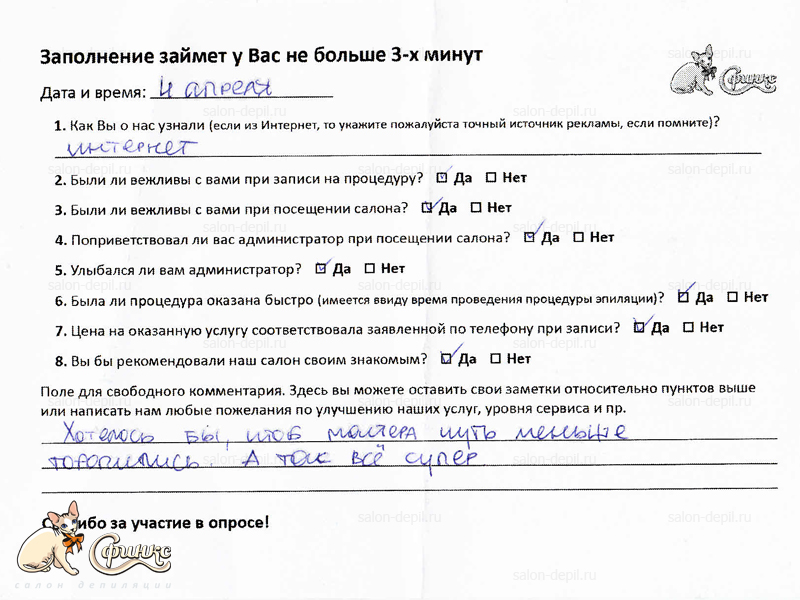 Заполнение займет у Вас не больше 3-х минут
Финкс
Дата и время: 4 апреля
1. Как Вы о нас узнали (если из Интернет, то укажите пожалуйста точный источник рекламы, если помните)?
интернет
2. Были ли вежливы с вами при записи на процедуру? Да Нет
3. Были ли вежливы с вами при посещении салона? Да Нет
4. Поприветствовал ли вас администратор при посещении салона? Да Нет
5. Улыбался ли вам администратор? Да Нет
6. Была ли процедура оказана быстро (имеется ввиду время проведения процедуры эпиляции)? Да Нет
7. Цена на оказанную услугу соответствовала заявленной по телефону при записи? Да Нет
8. Вы бы рекомендовали наш салон своим знакомым? Да Нет
Поле для свободного комментария. Здесь вы можете оставить свои заметки относительно пунктов выше
или написать нам любые пожелания по улучшению наших услуг, уровня сервиса и пр.
Хотелось бы, чтоб мастера чуть меньше
торопились. А так всё супер
Спасибо за участие в опросе!
Финкс
салон депиляции
salon-depil.ru